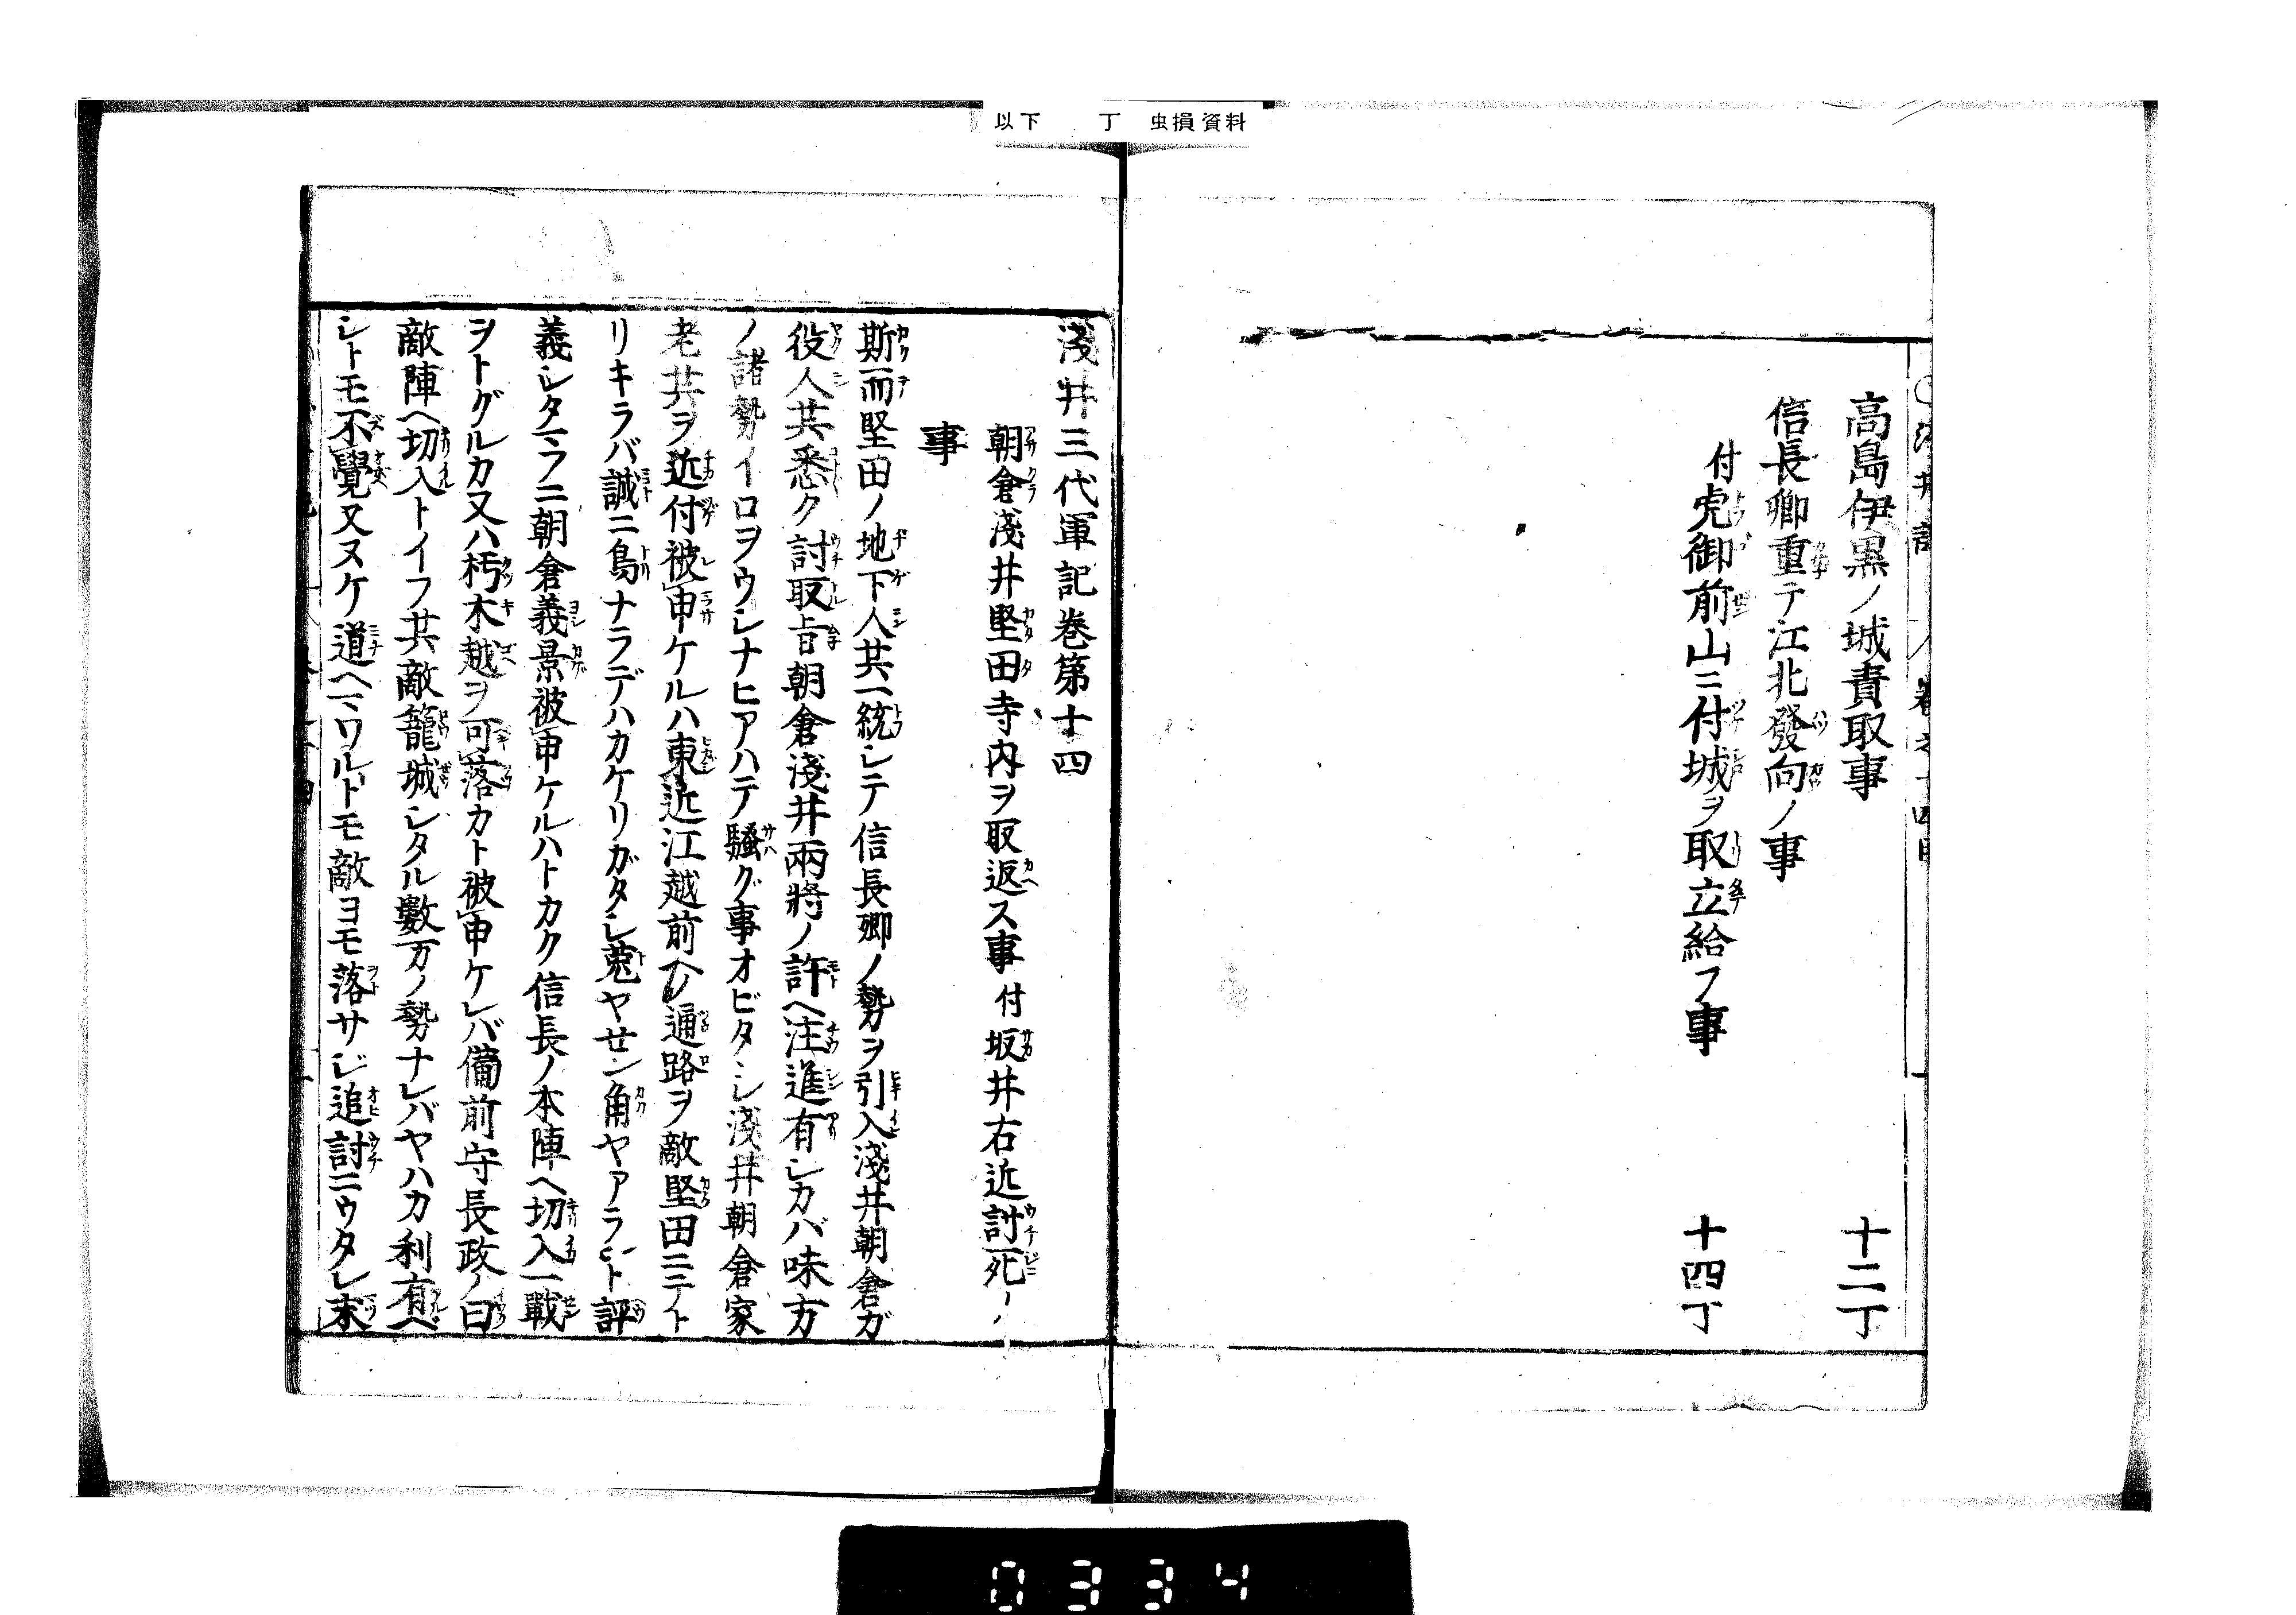 以下　　丁　虫損資料
高島伊黒ノ城責取事　十二丁
信長卿重テ江北發向ノ事
付虎御前山ニ付城ヲ取立給フ事　十四丁
淺井三代軍記卷第十四
朝倉淺井堅田寺内ヲ取返ス事付坂井右近討死ノ
事
斯而堅田ノ地下人共一統シテ信長卿ノ勢ヲ引入淺井朝倉ガ
役人共悉ク討取旨朝倉淺井兩將ノ許ヘ注進有シカバ味方
ノ諸勢イロヲウシナヒアハテ騷グ事オビタヽシ淺井朝倉家
老共ヲ近付被申ケルハ東近江越前ヘノ通路ヲ敵堅田ニテト
リキラバ誠ニ鳥ナラデハカケリガタシ菟ヤセン角ヤアラント評
義シタマフニ朝倉義景被申ケルハトカク信長ノ本陣ヘ切入一戰
ヲトグルカ又ハ朽木越ヲ可落カト被申ケレバ備前守長政ノ曰
敵陣ヘ切入トイフ共敵籠城シタル數万ノ勢ナレバヤハカ利有ヘ
シトモ不覺又ヌケ道ヘマワルトモ敵ヨモ落サジ追討ニウタレ末
0334